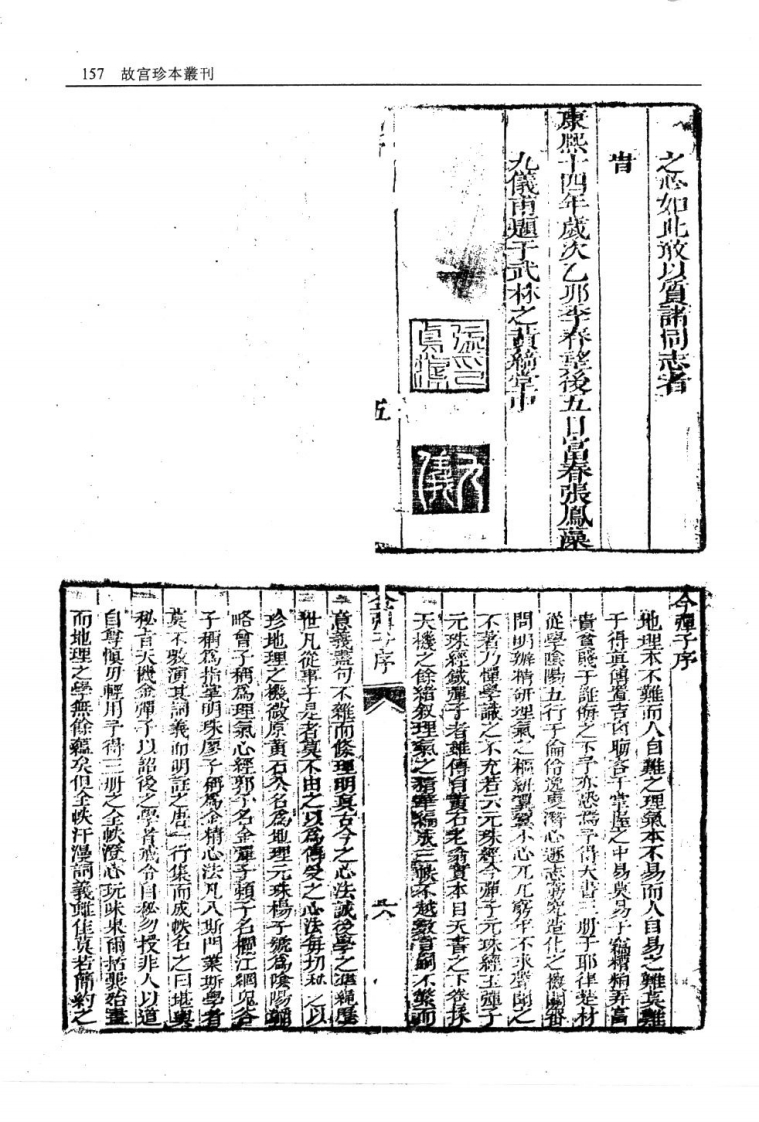 157 故宮珍本叢刊
之心如此敢以質諸同志者
旹
康熙十四年歲次乙卯季春望後五日富春張鳳藻
九儀甫題于武林之 堂中
張鳳藻印
九儀
五
金彈子序
地理本不難而人自難之理氣本不易而人自易之難莫難
于得真傳 吉凶聯 于掌握之中易莫易于 弄富
貴貧賤于 之下予 得天書三册于耶律楚材
從學陰陽五行于 潛心 志 究造化之 審
問明辨精研理氣之樞 小心 窮年不求聲聞之
不著乃 學識之不充若六元珠經金彈子元珠經玉彈子
元珠經鐵彈子者雖傳自黃石老翁實本目天書之下卷採
天機之餘緒叙理氣之精華編成三帙不越數首詞不繁而
金彈子序
六
意義盡句不雜而條理明真古今之心法誠後學之準繩歷
世凡從事于是者莫不由之以為傳受之心法每切秘之以
珍地理之機微原黃石公名為地理元珠楊子號為陰陽
略曾子稱為理氣心經郭子名金彈子賴子名 江綱鬼谷
子稱為指掌明珠廖子稱為金精心法凡入斯門業斯學者
莫不敷演其詞義而明註之唐一行集而成帙名之曰堪輿
秘旨天機金彈子以詔後之學者戒令自秘勿授非人以道
自尊慎毋輕用予得三册之全帙澄心玩味東爾括要殆盡
而地理之學無餘蘊矣但全帙汗漫詞義雖佳莫若簡約之